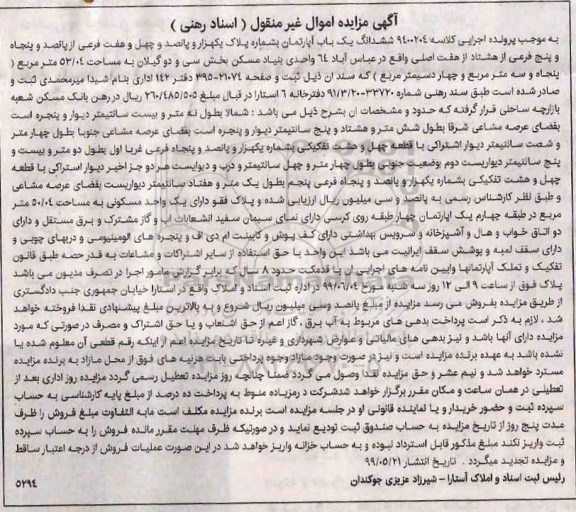 آگهی مزایده اموال غیر منقول ( اسناد رهنی )
به موجب پرونده اجرایی کلاسه ۹۴۰۰۲۰۴ ششدانگ یک باب آپارتمان بشماره پلاک یکهزار و پانصد و چهل و هفت فرعی از پانصد و پنجاه
و پنج فرعی از هشتاد از هفت اصلی واقع در عباس آباد ٦٤ واحدی بنیاد مسکن بخش سی و دو گیلان به مساحت ۵۳/۰۴ متر مربع (
پنجاه و سه متر مربع و چهار دسیمتر مربع ) که سند آن ذیل ثبت و صفحه ۲۱۰۷۴-۳۹۵ دفتر ۱۴۲ اداری بنام شیدا میرمحمدی ثبت و
صادر شده است طبق سند رهنی شماره ۳۳۷۲۰-۹۱/۳/۲۰ دفترخانه ٦ استارا در قبال مبلغ ۲۶۰/۴۸۵/۵۰۵ ریال در رهن بانک مسکن شعبه
بازارچه ساحلی قرار گرفته که حدود و مشخصات ان بشرح ذیل می باشد : شمالا بطول نه متر و بیست سانتیمتر دیوار و پنجره است
بفضای عرصه مشاعی شرقا بطول شش متر و هشتاد و پنج سانتیمتر دیوار و پنجره است بفضای عرصه مشاعی جنوبا بطول چهار متر
و شصت سانتیمتر دیوار اشتراکی با قطعه چهل و هشت تفکیکی بشماره یکهزار و پانصد و پنجاه فرعی غربا اول بطول دو متر و بیست و
پنج سانتیمتر دیواریست دوم بوضعیت جنوبی بطول چهار متر و چهل سانتیمتر و درب و دیوایست هر دو جز اخیر دیوار استراکی با قطعه
چهل و هشت تفکیکی بشماره یکهزار و پانصد و پنجاه فرعی پنجم بطول یک متر و هفتاد سانتیمتر دیواریست بفضای عرصه مشاعی
و طبق نظر کارشناس رسمی به پانصد و سی میلیون ریال ارزیابی شده و پلاک فقو دارای یک واحد مسکونی به مساحت ۵۰/۰۴ متر
مربع در طبقه چهارم یک اپارتمان چهار طبقه روی کرسی دارای نمای سیمان سفید انشعابات اب و گاز مشترک و برق مستقل و دارای
دو اتاق خواب و هال و آشپزخانه و سرویس بهداشتی دارای کف پوش و کابینت ام دی اف و پنجره های الومینیومی و دربهای چوبی و
دارای سقف لمبه و پوشش سقف ایرانیت می باشد این واحد با حق استفاده از سایر اشتراکات و مشاعات به قدر حصه طبق قانون
تفکیک و تملک آپارتمانها وایین نامه های اجرایی ان با قدمکت حدود ۸ سال که برابر گزارش مامور اجرا در تصرف مدیون می باشد
پلاک فوق از ساعت ۹ الی ۱۲ روز سه شنبه مورخ ۹۹/۰۶/۰۴ در اداره ثبت اسناد و املاک واقع در استارا خیابان جمهوری جنب دادگستری
از طریق مزایده بفروش می رسد مزایده از مبلغ پانصد وسی میلیون ریال شروع و به بالاترین مبلغ پیشنهادی نقدا فروخته خواهد
شد ، لازم به ذکر است پرداخت بدهی های مربوط به آب برق ، گاز اعم از حق اشتعاب و یا حق اشتراک و مصرف در صورتی که مورد
مزایده دارای آنها باشد و نیز بدهی های مالیاتی و عوارض شهرداری و غیره تا تاریخ مزایده اعم از اینکه رقم قطعی آن معلوم شده یا
نشده باشد به عهده برنده مزایده است و نیز در صورت وجود مازاد وجوه پرداختی بابت هزینه های فوق از محل مازاد به برنده مزایده
مسترد خواهد شد و نیم عشر و حق مزایده نقدا وصول می گردد ضمنا چنانچه روز مزایده تعطیل رسمی گردد مزایده روز اداری بعد از
تعطیلی در همان ساعت و مکان مقرر برگزار خواهد شدشرکت د رمزیاده منوط به پرداخت ده درصد از مبلغ پایه کارشناسی به حساب
سپرده ثبت و حضور خریدار و یا نماینده قانونی او در جلسه مزایده است برنده مزایده مکلف است مابه التفاوت مبلغ فروش را ظرف
مدت پنج روز از تاریخ مزایده به حساب صندوق ثبت تودیع نماید و در صورتیکه ظرف مهلت مقرر مانده فروش را به حساب سپرده
ثبت واریز نکند مبلغ مذکور قابل استرداد نبوده و به حساب خزانه واریز خواهد شد در این صورت عملیات فروش از درجه اعتبار ساقط
و مزایده تجدید میگردد . تاریخ انتشار ۹۹/۰۵/۲۱
رئیس ثبت اسناد و املاک آستارا – شیرزاد عزیزی جوکندان
۵۲۹۴